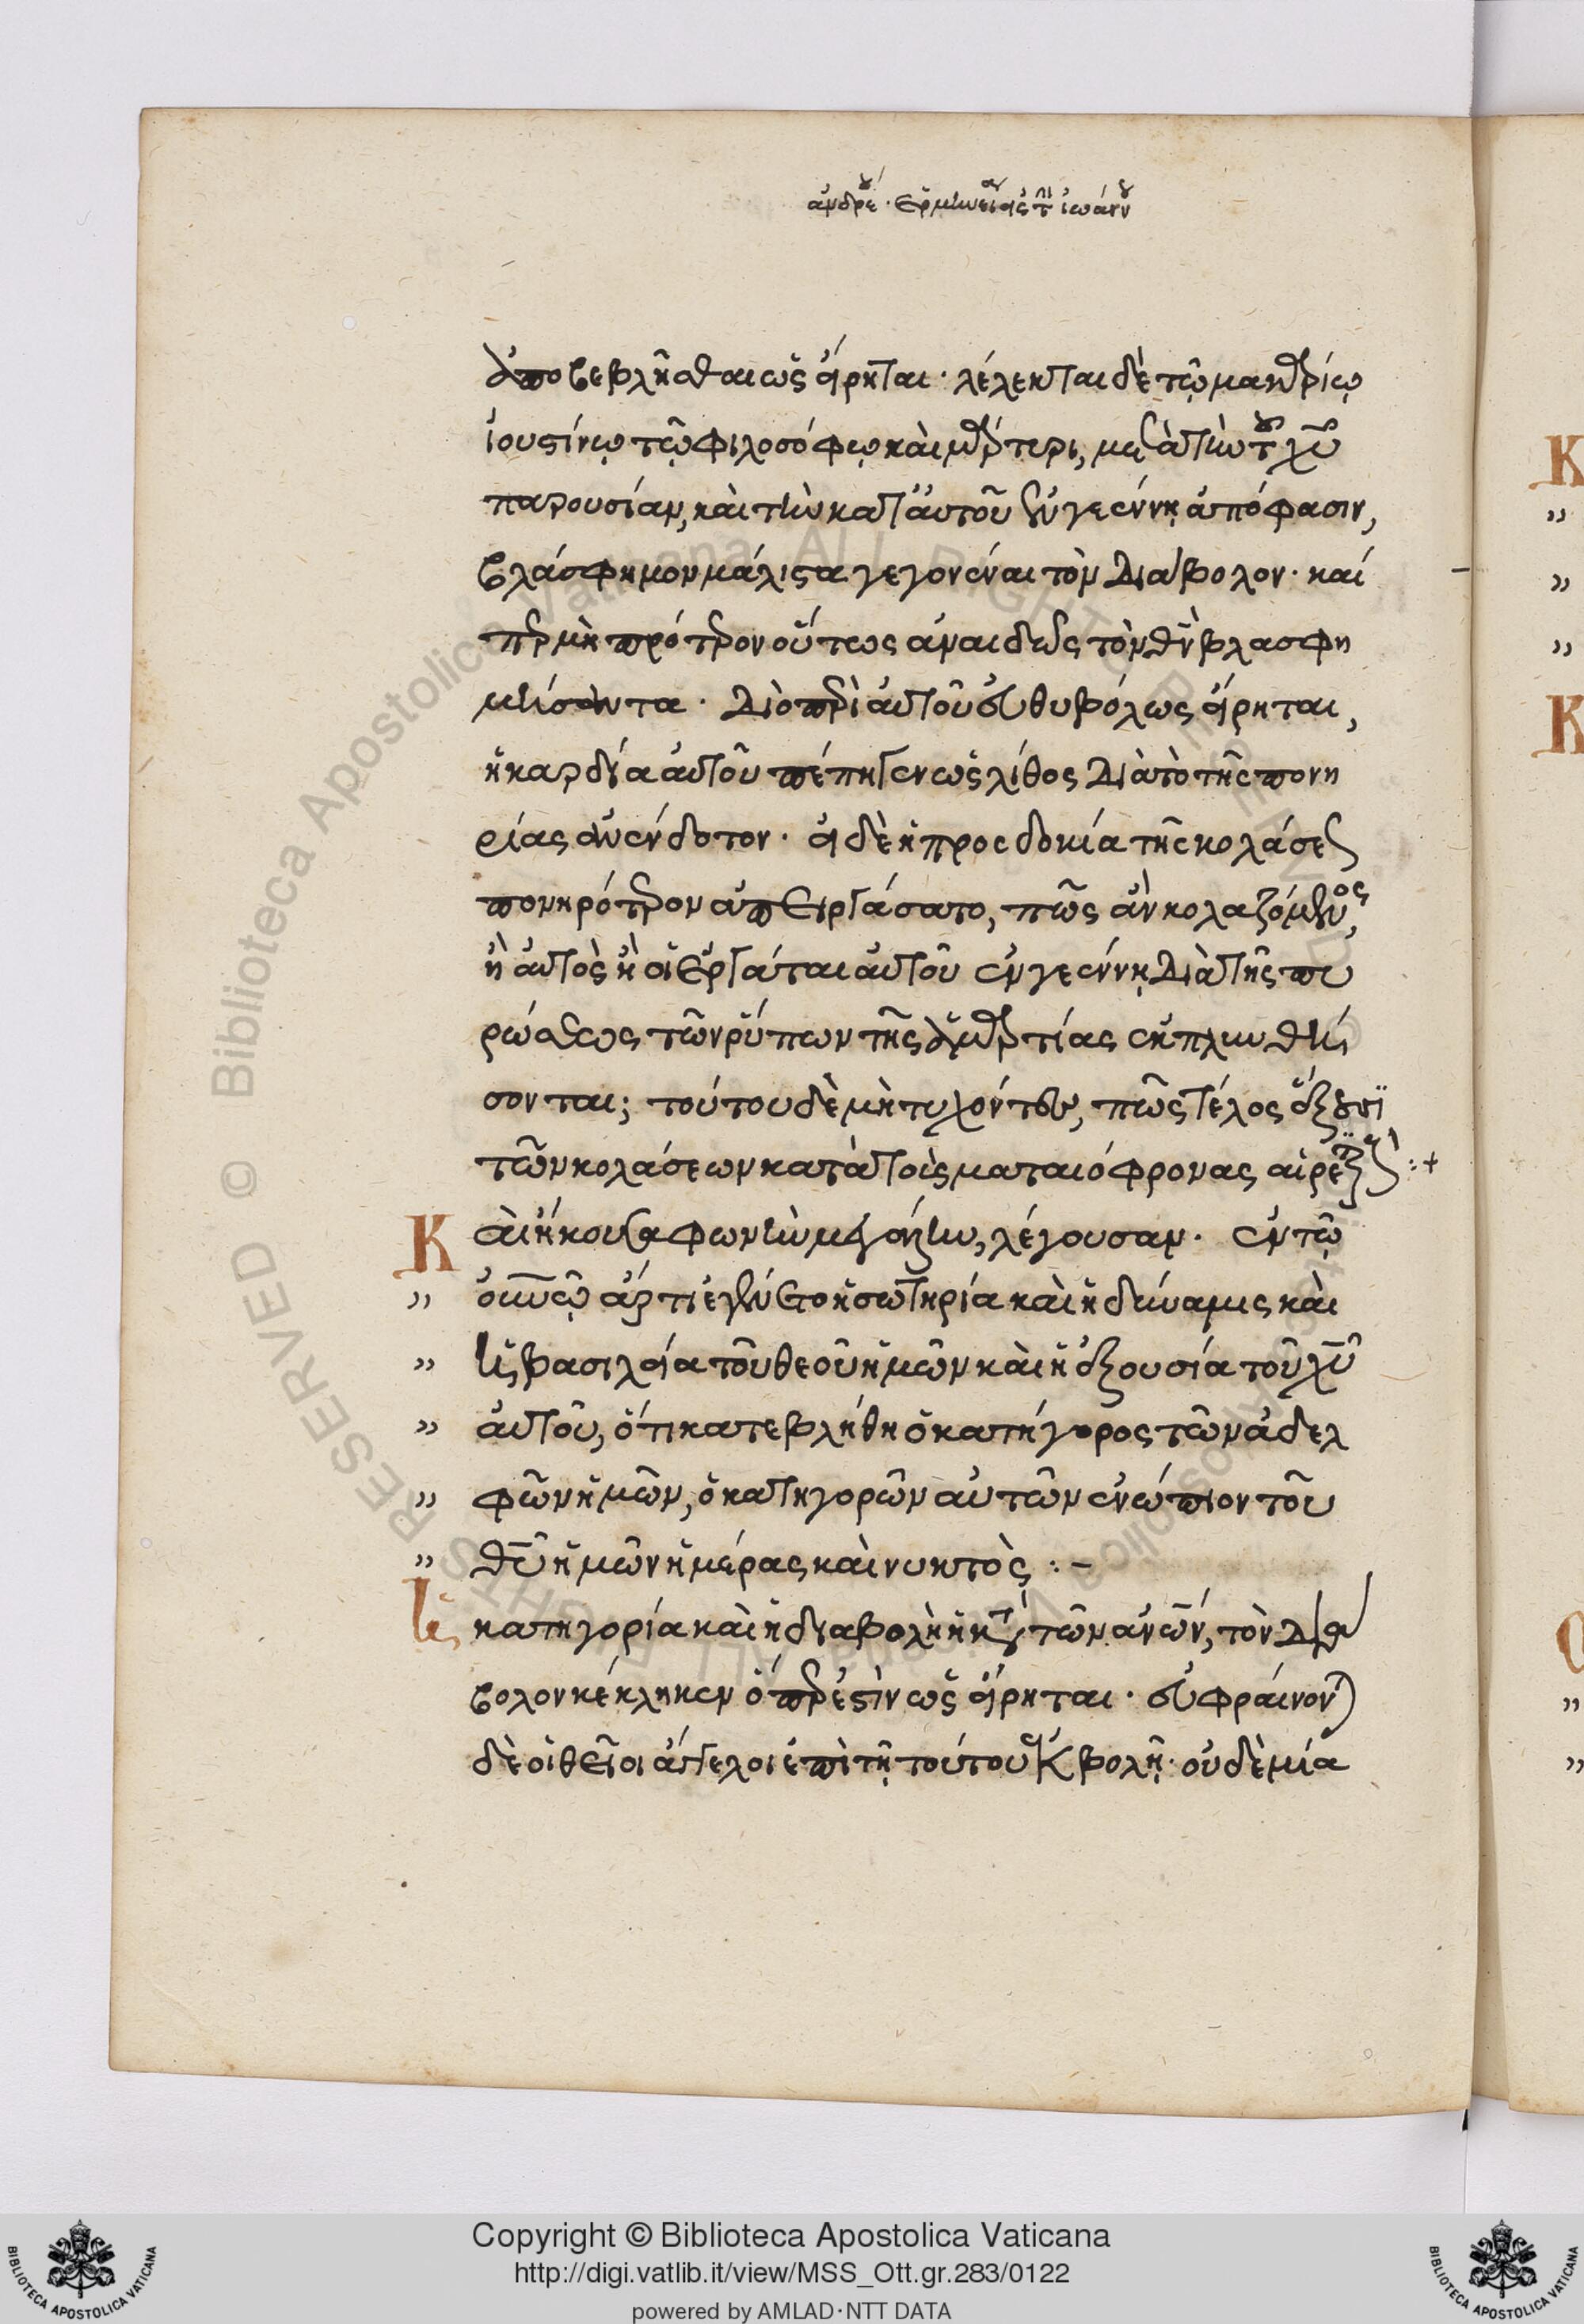 ἀνδρέου ἑρμηνεία εἰς τ ἰωάννου
ἀποβεβλῆσθαι ὡς εἴρηται· λέλεκται δὲ τῷ μακαρίῳ
ἰουστίνῳ τῷ φιλοσόφῳ καὶ μάρτυρι, μετὰ τὴν τοῦ χυ
παρουσίαν, καὶ τὴν κατ' αὐτοῦ ἐν γεέννῃ ἀπόφασιν,
βλάσφημον μάλιστα γεγονέναι τὸν διάβολον· καί
περ μὴ πρότερον οὕτως ἀναιδῶς τὸν θν βλασφη
μήσαντα· διὸ περὶ αὐτοῦ εὐθυβόλως εἴρηται,
ἡ καρδία αὐτοῦ πέπηγεν ὡς λίθος διὰ τὸ τῆς πονη
ρίας ἀνένδοτον· εἰ δὲ ἡ προσδοκία τῆς κολάσεως
πονηρότερον ἀπειργάσατο, πῶς ἂν κολαζόμενος,
ἢ αὐτὸς ἢ οἱ ἐργάται αὐτοῦ ἐν γεέννῃ διὰ τῆς πυ
ρώσεως τῶν ῥύπων τῆς ἁμαρτίας ἐκπλυθή
σονται; τούτου δὲ μὴ τυχόντες, πῶς τέλος ἕξουσι
τῶν κολάσεων κατὰ τοὺς ματαιόφρονας αἱρετίζοντας :+
Καὶ ἤκουσα φωνὴν μεγάλην, λέγουσαν· ἐν τῷ
" οὐνῷ ἄρτι ἐγένετο ἡ σωτηρία καὶ ἡ δύναμις καὶ
" ἡ βασιλεία τοῦ θεοῦ ἡμῶν καὶ ἡ ἐξουσία τοῦ χυ
" αὐτοῦ, ὅτι κατεβλήθη ὁ κατήγορος τῶν ἀδελ
" φῶν ἡμῶν, ὁ κατηγορῶν αὐτῶν ἐνώπιον τοῦ
" θυ ἡμῶν ἡμέρας καὶ νυκτὸς :-
Ἡ κατηγορία καὶ ἡ διαβολὴ ἡ κατὰ τῶν ἀνων, τὸν διά
βολον κέκληκεν ὅπερ ἐστὶν ὡς εἴρηται· εὐφραίνονται
δὲ οἱ θεῖοι ἄγγελοι ἐπὶ τῇ τούτου ἐκβολῇ· οὐδὲ μία
Copyright © Biblioteca Apostolica Vaticana
http://digi.vatlib.it/view/MSS_Ott.gr.283/0122
powered by AMLAD·NTT DATA